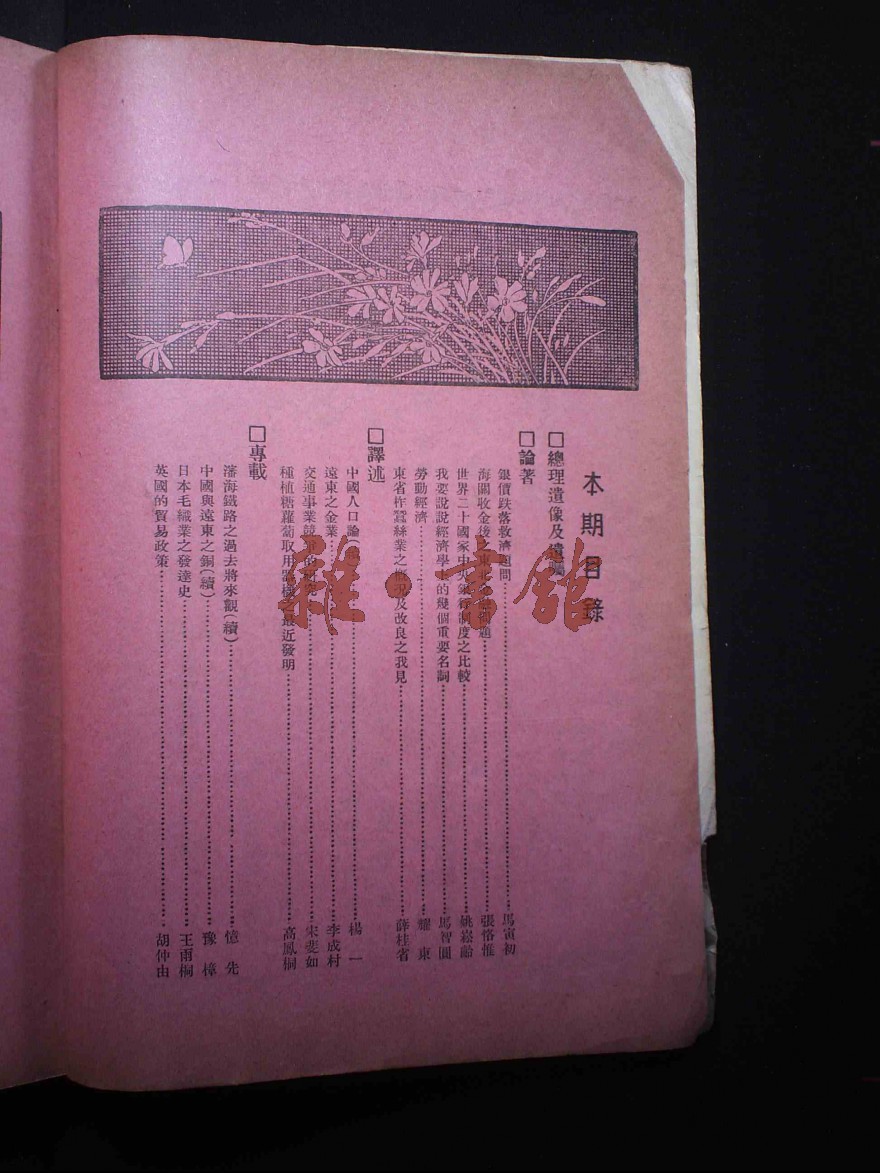 本期目錄
□總理遺像及遺囑
□論著
銀價跌落救濟問題……馬寅初
海關收金後之東北……題……張恪惟
世界二十國家中央銀行制度之比較……姚崧齡
我要說說經濟學上的幾個重要名詞……馬智圓
勞動經濟……耀東
東省柞蠶絲業之概況及改良之我見……薛桂省
□譯述
中國人口論(續)……楊一
遠東之金業……李成村
交通事業競爭的研究……宋斐如
種植糖蘿蔔取用器械之最近發明……高鳳桐
□專載
瀋海鐵路之過去將來觀(續)……憶先
中國與遠東之銅(續)……豫樟
日本毛織業之發達史……王雨桐
英國的貿易政策……胡仲由
雜·書館